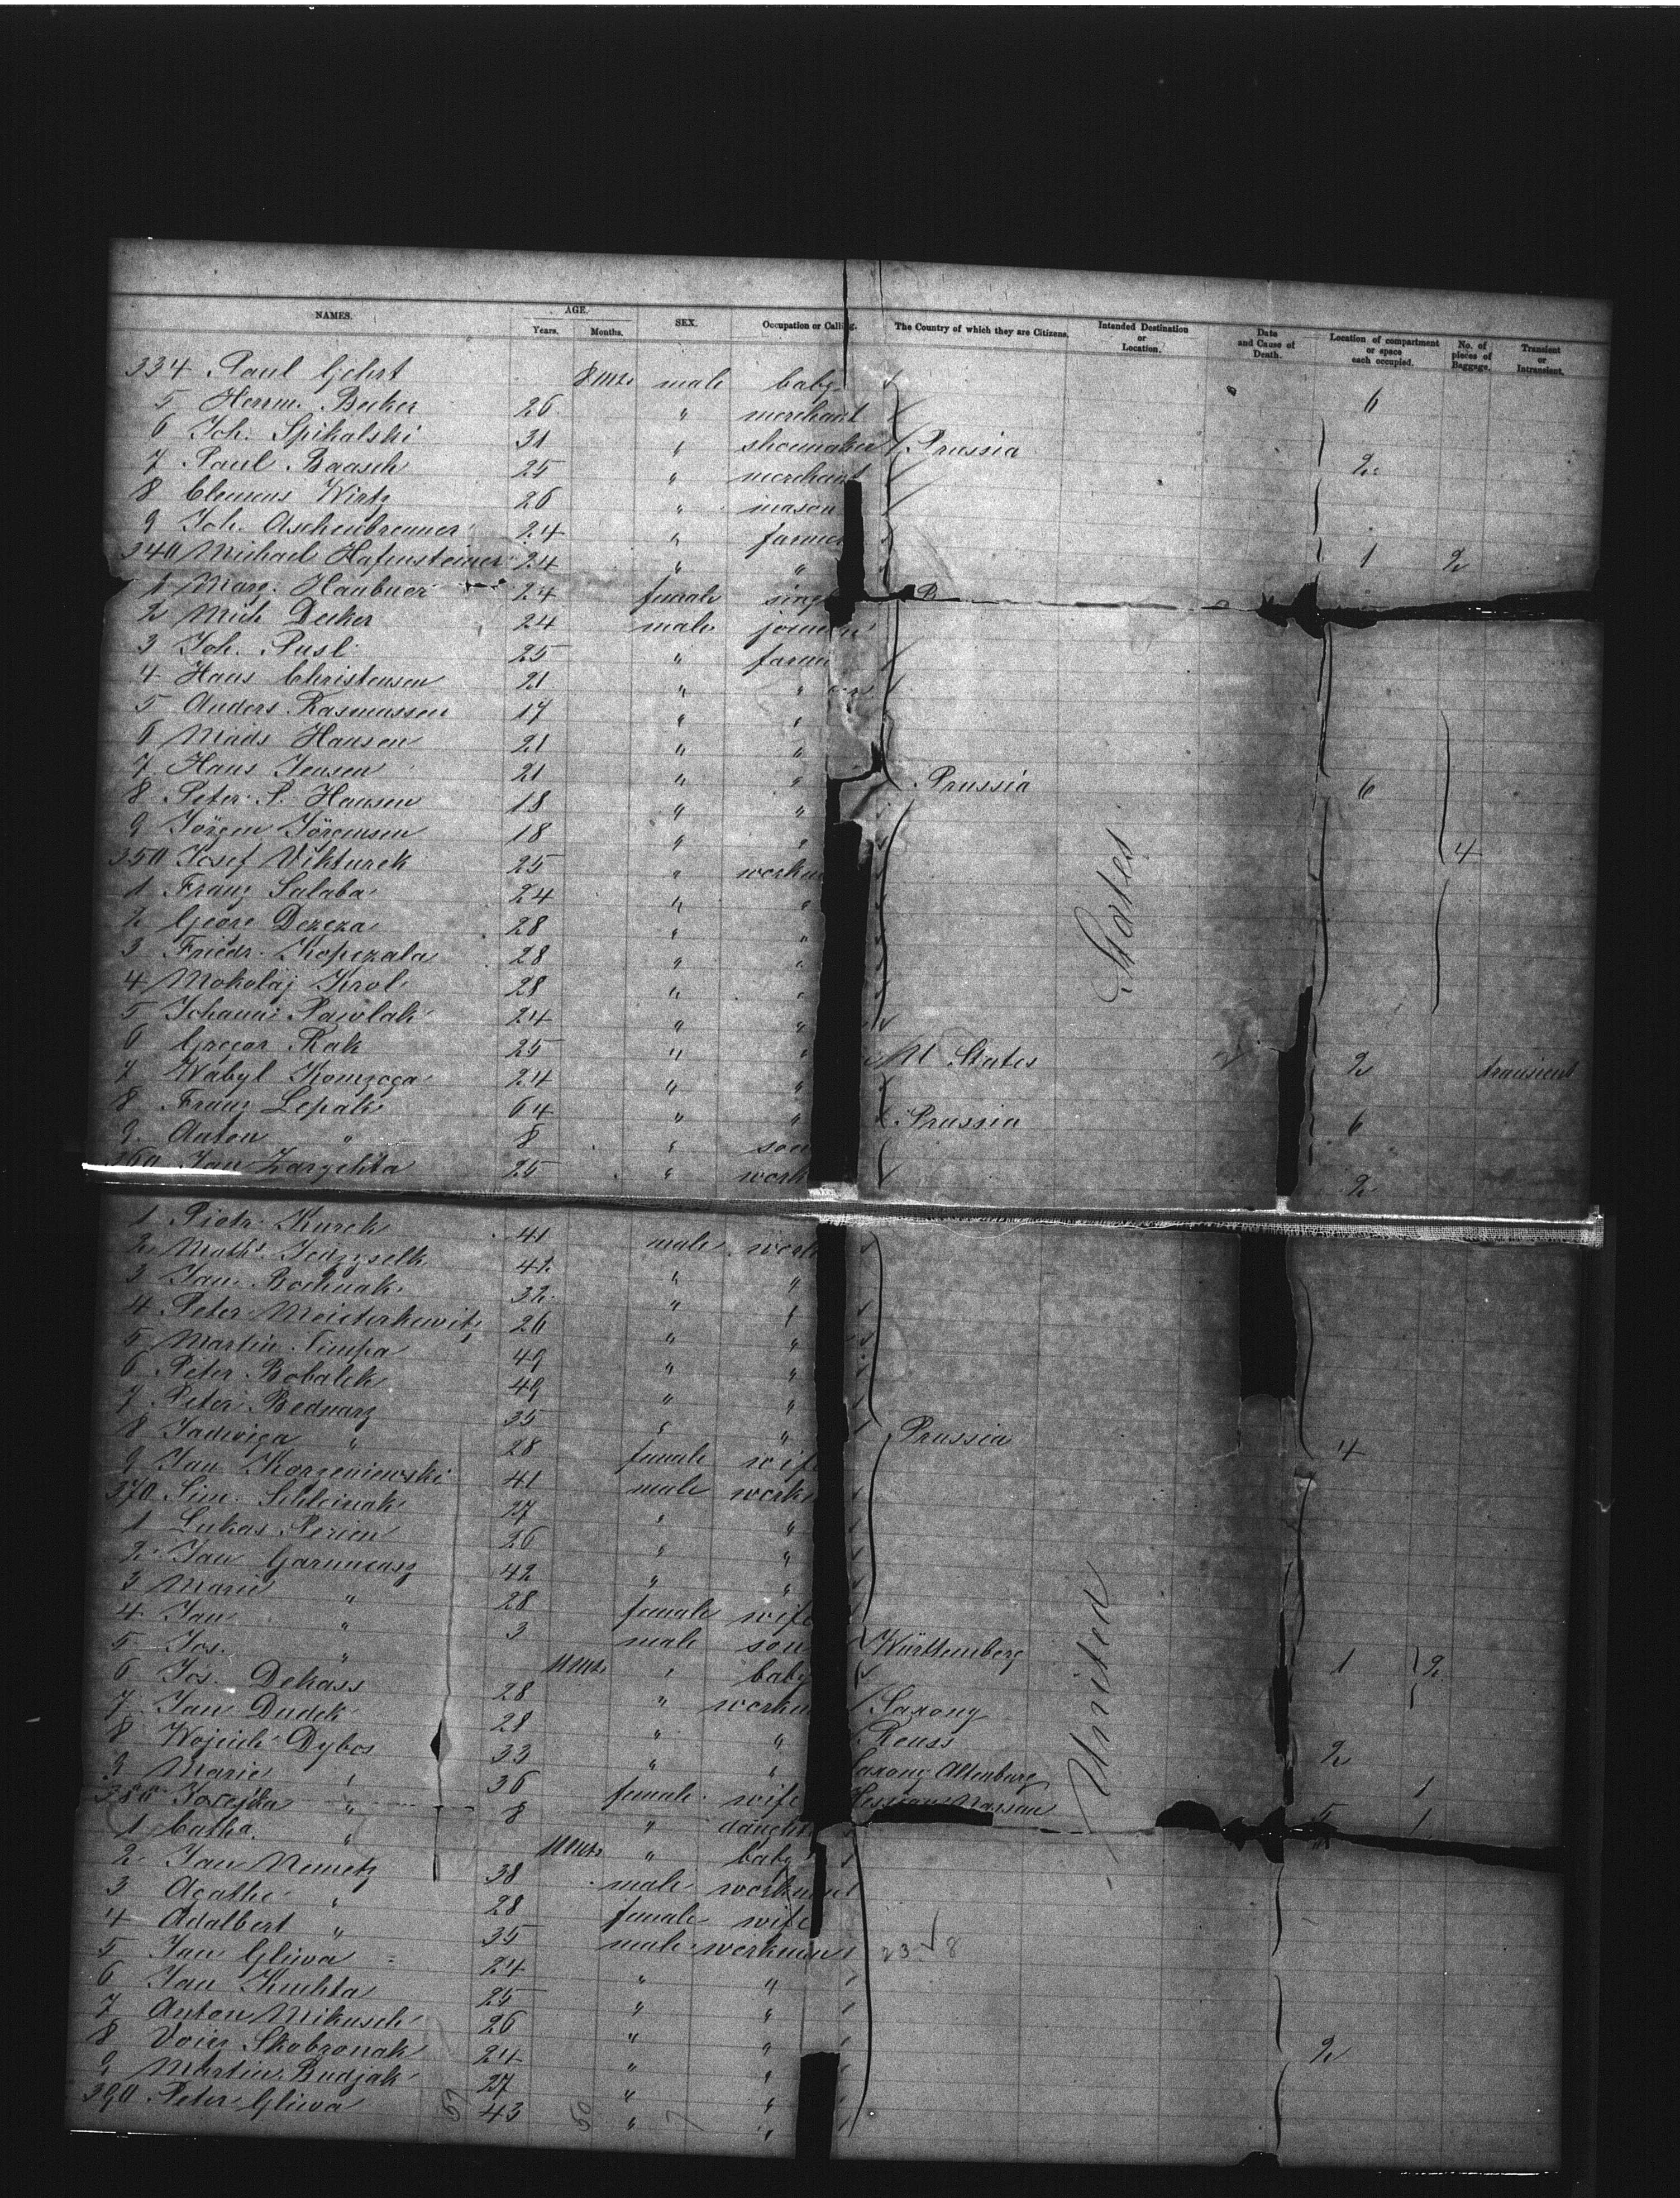 NAMES. AGE. SEX. Occupation or Calling. The Country of which they are Citizens. Intended Destination or Location. Date and Cause of Death. Location of compartment or space each occupied. No. of pieces of Baggage. Transient or Intransient.
Years. Months.
334 Paul Gehrt 8 mts male baby
5 Herrm. Becker 26 " merchant 6
6 Joh. Spikalski 31 " shoemaker Prussia
7 Paul Baasch 25 " merchant 2
8 Clemens Wirtz 26 " mason
9 Joh. Aschenbrenner 24 " farmer
340 Michael Hafensteiner 24 " " 1 2
1 Marg. Haubner 24 female sing B
2 Mich Decker 24 male
3 Joh. Pusl 25 " farm
4 Hans Christensen 21 " "
5 Anders Rasmussen 17 " "
6 Mads Hansen 21 " "
7 Hans Jensen 21 " " Prussia 6
8 Peter P. Hansen 18 " "
9 Jörgen Jörgensen 18 " "
350 Josef Vikturek 25 " workm 4
1 Franz Salaba 24 " "
2 Georg Dezeza 28 " "
3 Friedr. Kopezala 28 " "
4 Mokolaj Krol 28 " "
5 Johann Pawlak 24 " "
6 Gregor Rak 25 " " U States 2 transient
7 Wabyl Komzoga 24 " "
8 Franz Lepak 64 " " Prussia 6
9 Anton " 8 " son
360 Jan 25 " work 2
1 Piotr Kurek 41 male work
2 Math. 42 " "
3 Jan Bochnak 32 " "
4 Peter 26 " "
5 Martin Timpa 49 " "
6 Peter Bobalek 49 " "
7 Peter Bednarz 35 " "
8 Jadwiga " 28 female wife Prussia 4
9 Jan Korzeniewski 41 male workm
370 Sim. 27 " "
1 Lukas Perien 26 " "
2 Jan 42 " "
3 Marie " 28 female wife
4 Jan " 3 male son Württemberg
5 Jos. " 11 mts " baby 1 2
6 Jos. Dekass 28 " workm Saxony
7 Jan Dudek 28 " " Reuss
8 Wojcich Dybos 33 " " Saxony Altenburg 2
9 Marie " 36 female wife Hessian Nassau 1
380 " 8 " daught 5 1
1 Catha. " 11 mts " baby
2 Jan Nemetz 38 male workman
3 Agathe " 28 female wife
4 Adalbert " 35 male workman 23 8
5 Jan Gliwa 24 " "
6 Jan Kuchta 25 " "
7 Anton Mikusch 26 " "
8 Skobronak 24 " " 2
9 Martin Budjak 27 " "
390 Peter Gliwa 43 " "
United States